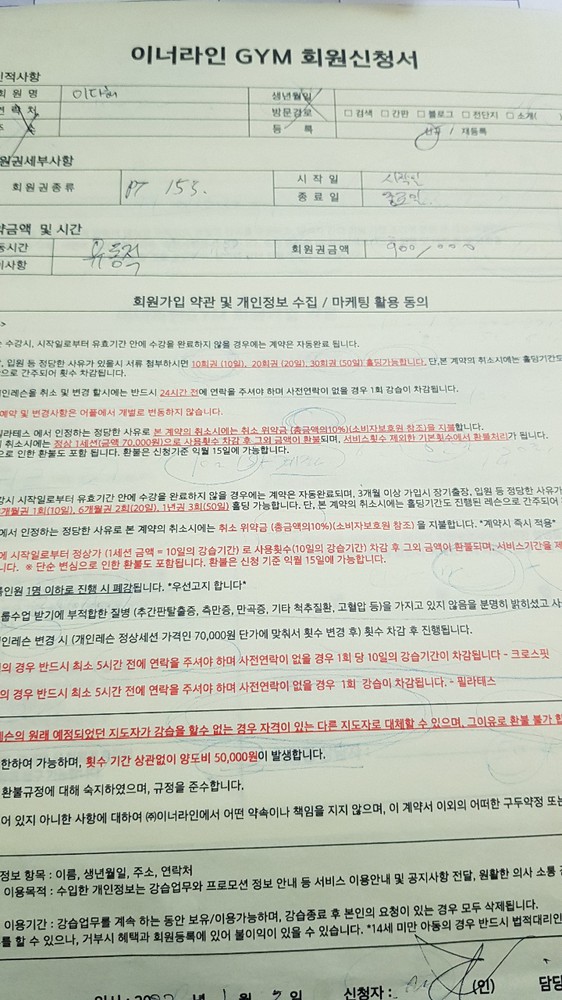 이너라인 GYM 회원신청서
인적사항
회 원 명 이다희 생년월일
연 락 처 방문경로 □ 검색 □ 간판 □ 블로그 □ 전단지 □ 소개( )
주 소 등 록 신규 / 재등록
원권세부사항
회원권종류 PT 153. 시 작 일 시작일
종 료 일 종료일
약금액 및 시간
동시간 유동적 회원권금액 900,000
사항
회원가입 약관 및 개인정보 수집 / 마케팅 활용 동의
>
수강시, 시작일로부터 유효기간 안에 수강을 완료하지 않을 경우에는 계약은 자동완료 됩니다.
, 입원 등 정당한 사유가 있을시 서류 첨부하시면 10회권 (10일), 20회권 (20일), 30회권 (50일) 홀딩가능합니다. 단,본 계약의 취소시에는 홀딩기간도
으로 간주되어 횟수 차감됩니다.
인레슨을 취소 및 변경 할시에는 반드시 24시간 전에 연락을 주셔야 하며 사전연락이 없을 경우 1회 강습이 차감됩니다.
예약 및 변경사항은 어플에서 개별로 변동하지 않습니다.
필라테스 에서 인정하는 정당한 사유로 본 계약의 취소시에는 취소 위약금 (총금액의10%)(소비자보호원 참조)을 지불합니다.
본 계약의 취소시에는 정상 1세션(금액 70,000원)으로 사용횟수 차감 후 그외 금액이 환불되며, 서비스횟수 제외한 기본횟수에서 환불처리가 됩니다.
으로 인한 환불도 포함 됩니다. 환불은 신청기준 익월 15일에 가능합니다.
강시 시작일로부터 유효기간 안에 수강을 완료하지 않을 경우에는 계약은 자동완료되며, 3개월 이상 가입시 장기출장, 입원 등 정당한 사유가
개월권 1회(10일), 6개월권 2회(20일), 1년권 3회(50일) 홀딩 가능합니다. 단, 본 계약의 취소시에는 홀딩기간도 진행된 레슨으로 간주되어
에서 인정하는 정당한 사유로 본 계약의 취소시에는 취소 위약금 (총금액의10%)(소비자보호원 참조) 을 지불합니다. *계약시 즉시 적용*
에 시작일로부터 정상가 (1세션 금액 = 10일의 강습기간) 로 사용횟수(10일의 강습기간) 차감 후 그외 금액이 환불되며, 서비스기간을 제
니다. ※ 단순 변심으로 인한 환불도 포함됩니다. 환불은 신청 기준 익월 15일에 가능합니다.
인원 1명 이하로 진행 시 폐강됩니다. *우선고지 합니다*
룹수업 받기에 부적합한 질병 (추간판탈출증, 측만증, 만곡증, 기타 척추질환, 고혈압 등)을 가지고 있지 않음을 분명히 밝히셨고 사
인레슨 변경 시 (개인레슨 정상세션 가격인 70,000원 단가에 맞춰서 횟수 변경 후) 횟수 차감 후 진행됩니다.
의 경우 반드시 최소 5시간 전에 연락을 주셔야 하며 사전연락이 없을 경우 1회 당 10일의 강습기간이 차감됩니다 - 크로스핏
의 경우 반드시 최소 5시간 전에 연락을 주셔야 하며 사전연락이 없을 경우 1회 강습이 차감됩니다. - 필라테스
레슨의 원래 예정되었던 지도자가 강습을 할수 없는 경우 자격이 있는 다른 지도자로 대체할 수 있으며, 그이유로 환불 불가 합
한하여 가능하며, 횟수 기간 상관없이 양도비 50,000원이 발생합니다.
환불규정에 대해 숙지하였으며, 규정을 준수합니다.
어 있지 아니한 사항에 대하여 ㈜이너라인에서 어떤 약속이나 책임을 지지 않으며, 이 계약서 이외의 어떠한 구두약정 또는
정보 항목 : 이름, 생년월일, 주소, 연락처
이용목적 : 수입한 개인정보는 강습업무와 프로모션 정보 안내 등 서비스 이용안내 및 공지사항 전달, 원활한 의사 소통
이용기간 : 강습업무를 계속 하는 동안 보유/이용가능하며, 강습종료 후 본인의 요청이 있는 경우 모두 삭제됩니다.
를 할 수 있으나, 거부시 혜택과 회원등록에 있어 불이익이 있을 수 있습니다. *14세 미만 아동의 경우 반드시 법적대리인
일시 : 20 년 1 월 2 일 신청자 : (인) 담당